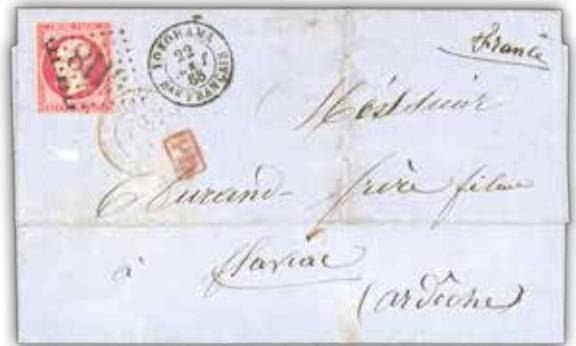 YOKOHAMA
22
68
Bau FRANÇAIS
France
Messieurs
PD
Durand frère
à Flaviac
(ardèche)